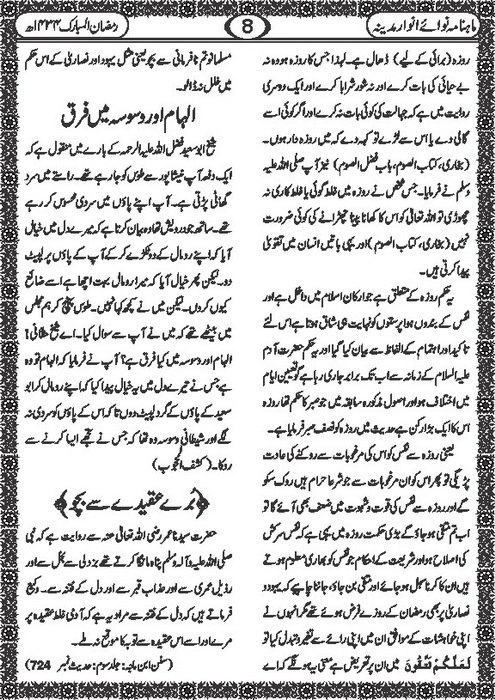 ماہنامہ نوائے انوارِ مدینہ
8
رمضان المبارک ۱۴۳۴ھ
روزہ (برائی کے لیے) ڈھال ہے۔ لہٰذا جس کا روزہ ہو وہ نہ
بے حیائی کی بات کرے اور نہ شور شرابا کرے اور ایک دوسری
روایت میں ہے کہ جہالت کی کوئی بات نہ کرے اور اگر کوئی اسے
گالی دے یا اس سے لڑے تو کہہ دے کہ میں روزہ دار ہوں۔
(بخاری، کتاب الصوم، باب فضل الصوم) نیز آپ صلی اللہ علیہ
وسلم نے فرمایا۔ جس شخص نے روزہ میں غلط گوئی یا غلط کاری نہ
چھوڑی تو اللہ تعالیٰ کو اس کا کھانا پینا چھڑانے کی کوئی ضرورت
نہیں (بخاری، کتاب الصوم) اور یہی باتیں انسان میں تقویٰ
پیدا کرتی ہیں۔
یہ حکم روزہ کے متعلق ہے جو ارکان اسلام میں داخل ہے اور
نفس کے بندوں ہوا پرستوں کو نہایت ہی شاق ہوتا ہے اس لئے
تاکید اور اہتمام کے الفاظ سے بیان کیا گیا اور یہ حکم حضرت آدم
علیہ السلام کے زمانہ سے اب تک برابر جاری رہا ہے گو تعیین ایام
میں اختلاف ہو اور اصول مذکورہ سابقہ میں جو صبر کا حکم تھا روزہ
اس کا ایک بڑا رکن ہے حدیث میں روزہ کو نصف صبر فرمایا ہے۔
یعنی روزہ سے نفس کو اس کی مرغوبات سے روکنے کی عادت
پڑے گی تو پھر اس کو ان مرغوبات سے جو شرعاً حرام ہیں روک سکو
گے اور روزہ سے نفس کی قوت و شہوت میں ضعف بھی آئے گا تو
اب تم متقی ہو جاؤ گے بڑی حکمت روزہ میں یہی ہے کہ نفس سرکش
کی اصلاح ہو اور شریعت کے احکام جو نفس کو بھاری معلوم ہوتے
ہیں ان کا کرنا سہل ہو جائے اور متقی بن جاؤ، جاننا چاہیے کہ یہود و
نصاریٰ پر بھی رمضان کے روزے فرض ہوئے تھے مگر انہوں نے
اپنی خواہشات کے موافق ان میں اپنی رائے سے تغیر و تبدل کیا تو
لَعَلَّكُمْ تَتَّقُونَ میں ان پر تعریض ہے معنی یہ ہونگے کہ اے
مسلمانو تم نافرمانی سے بچو یعنی مثل یہود اور نصاریٰ کے اس حکم
میں خلل نہ ڈالو۔
الہام اور وسوسہ میں فرق
شیخ ابو سعید فضل اللہ علیہ الرحمہ کے بارے میں منقول ہے کہ
ایک دفعہ آپ نیشاپور سے طوس کو جا رہے تھے۔ راستے میں سرد
گھاٹی پڑتی ہے۔ آپ اپنے پاؤں میں سردی محسوس کر رہے
تھے۔ ساتھ جو درویش تھا وہ بیان کرتا ہے کہ میرے دل میں خیال
آیا کہ اپنے رومال کے دو ٹکڑے کر کے آپ کے پاؤں پر لپیٹ
دو۔ لیکن پھر خیال آیا کہ میرا رومال بہت اچھا ہے اسے ضائع
کیوں کروں۔ لیکن میں نے کچھ کہا نہیں۔ طوس پہنچ کر ہم مجلس
میں بیٹھے تھے کہ میں نے آپ سے سوال کیا۔ اے شیخ حقانی!
الہام اور وسوسہ میں کیا فرق ہے؟ آپ نے فرمایا کہ الہام تو وہ
ہے جس نے تیرے دل میں یہ خیال پیدا کیا کہ اپنے رومال کو ابو
سعید کے پاؤں کے گرد لپیٹ دوں تا کہ اس کے پاؤں کو سردی نہ
لگے اور شیطانی وسوسہ وہ تھا کہ جس نے تجھے ایسا کرنے سے
روکا۔ (کشف المحجوب)
﴿برے عقیدے سے بچو﴾
حضرت سیدنا عمر رضی اللہ تعالیٰ عنہ سے روایت ہے کہ نبی
صلی اللہ علیہ و آلہ وسلم پناہ مانگا کرتے تھے بزدلی سے بخل سے اور
رذیل عمری سے اور عذاب قبر سے اور دل کے فتنہ سے۔ وکیع
فرماتے ہیں کہ دل کے فتنہ سے مراد یہ ہے کہ آدمی غلط عقیدہ پر
مرے اور اسے اس عقیدہ سے توبہ کا موقع نہ ملے۔
(سنن ابن ماجہ: جلد سوم: حدیث نمبر 724)